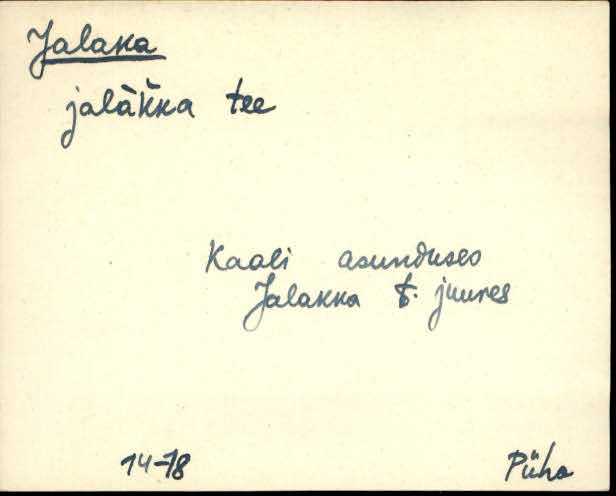 Jalaka
jalàk̆ka tee
Kaali asunduses
Jalakka t. juures
14-18
Püha